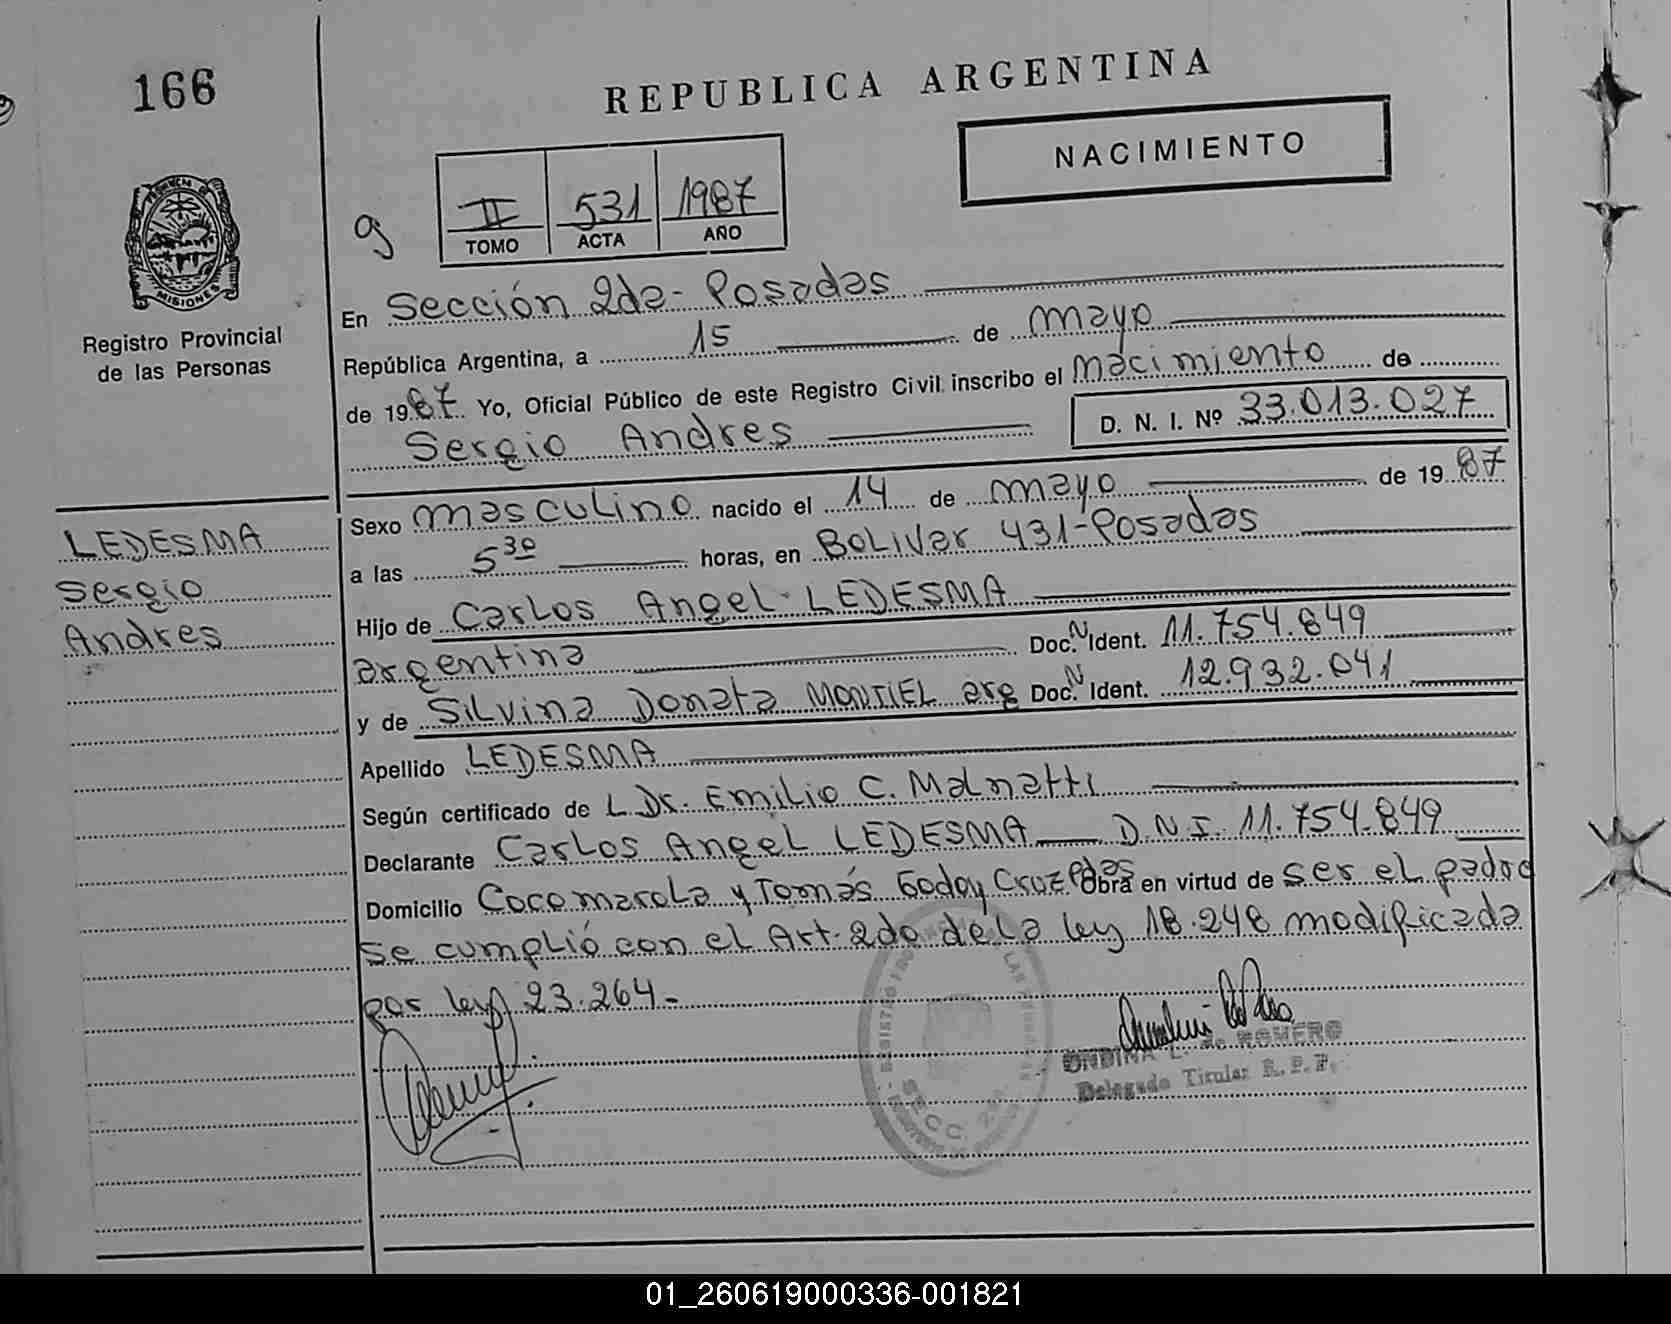 166
REPUBLICA ARGENTINA
NACIMIENTO
II 531 1987
TOMO ACTA AÑO
g
MISIONES
Registro Provincial
de las Personas
En Sección 2da - Posadas
República Argentina, a 15 de mayo
de 1987. Yo, Oficial Público de este Registro Civil inscribo el nacimiento de
Sergio Andres D. N. I. Nº 33.013.027
LEDESMA
Sergio
Andres
Sexo masculino nacido el 14 de mayo de 1987
a las 5 30 horas, en Bolivar 431-Posadas
Hijo de Carlos Angel LEDESMA
argentina Doc. N Ident. 11.754.849
y de Silvina Donata MONTIEL arg Doc. N Ident. 12.932.041
Apellido LEDESMA
Según certificado de L Dr. Emilio C. Malnatti
Declarante Carlos Angel LEDESMA D.N.I. 11.754.849
Domicilio Cocomarola y Tomás Godoy Cruz Pdas Obra en virtud de ser el padre
se cumplió con el Art. 2do de la ley 18.248 modificada
por ley 23.264-
SECC. 2da.
ONDINA L. de ROMERO
Delegado Titular R. P. P.
01_260619000336-001821